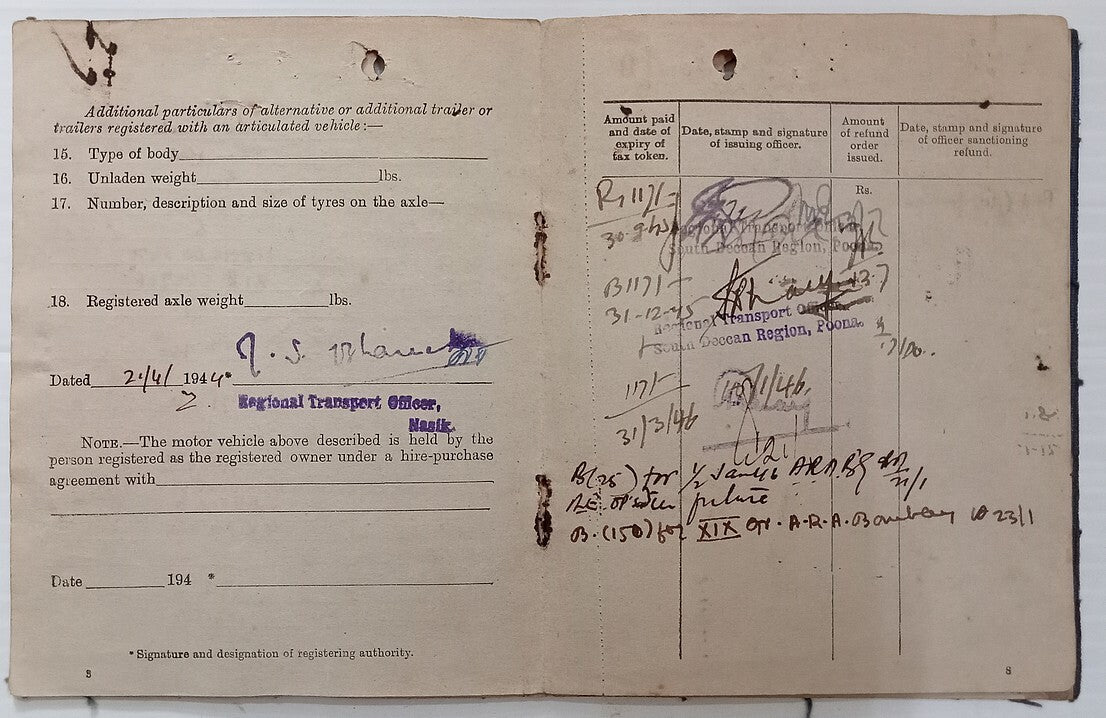 Additional particulars of alternative or additional trailer or
trailers registered with an articulated vehicle :—
15. Type of body
16. Unladen weight lbs.
17. Number, description and size of tyres on the axle—
18. Registered axle weight lbs.
Dated 21/4/ 1944*
Regional Transport Officer,
Nasik.
NOTE.—The motor vehicle above described is held by the
person registered as the registered owner under a hire-purchase
agreement with
Date 194 *
* Signature and designation of registering authority.
8
Amount paid
and date of
expiry of
tax token.
Date, stamp and signature
of issuing officer.
Amount
of refund
order
issued.
Date, stamp and signature
of officer sanctioning
refund.
Rs.
Rs 117/-
30-9-45
Regional Transport Officer
South Deccan Region, Poona.
117/-
31-12-45
Regional Transport Officer
South Deccan Region, Poona.
117/-
31/3/46
1/46.
B (25) for 1/2 Jan 46 A.R.A.
B. (150) for XIX A.R.A. Bombay 23/1
8